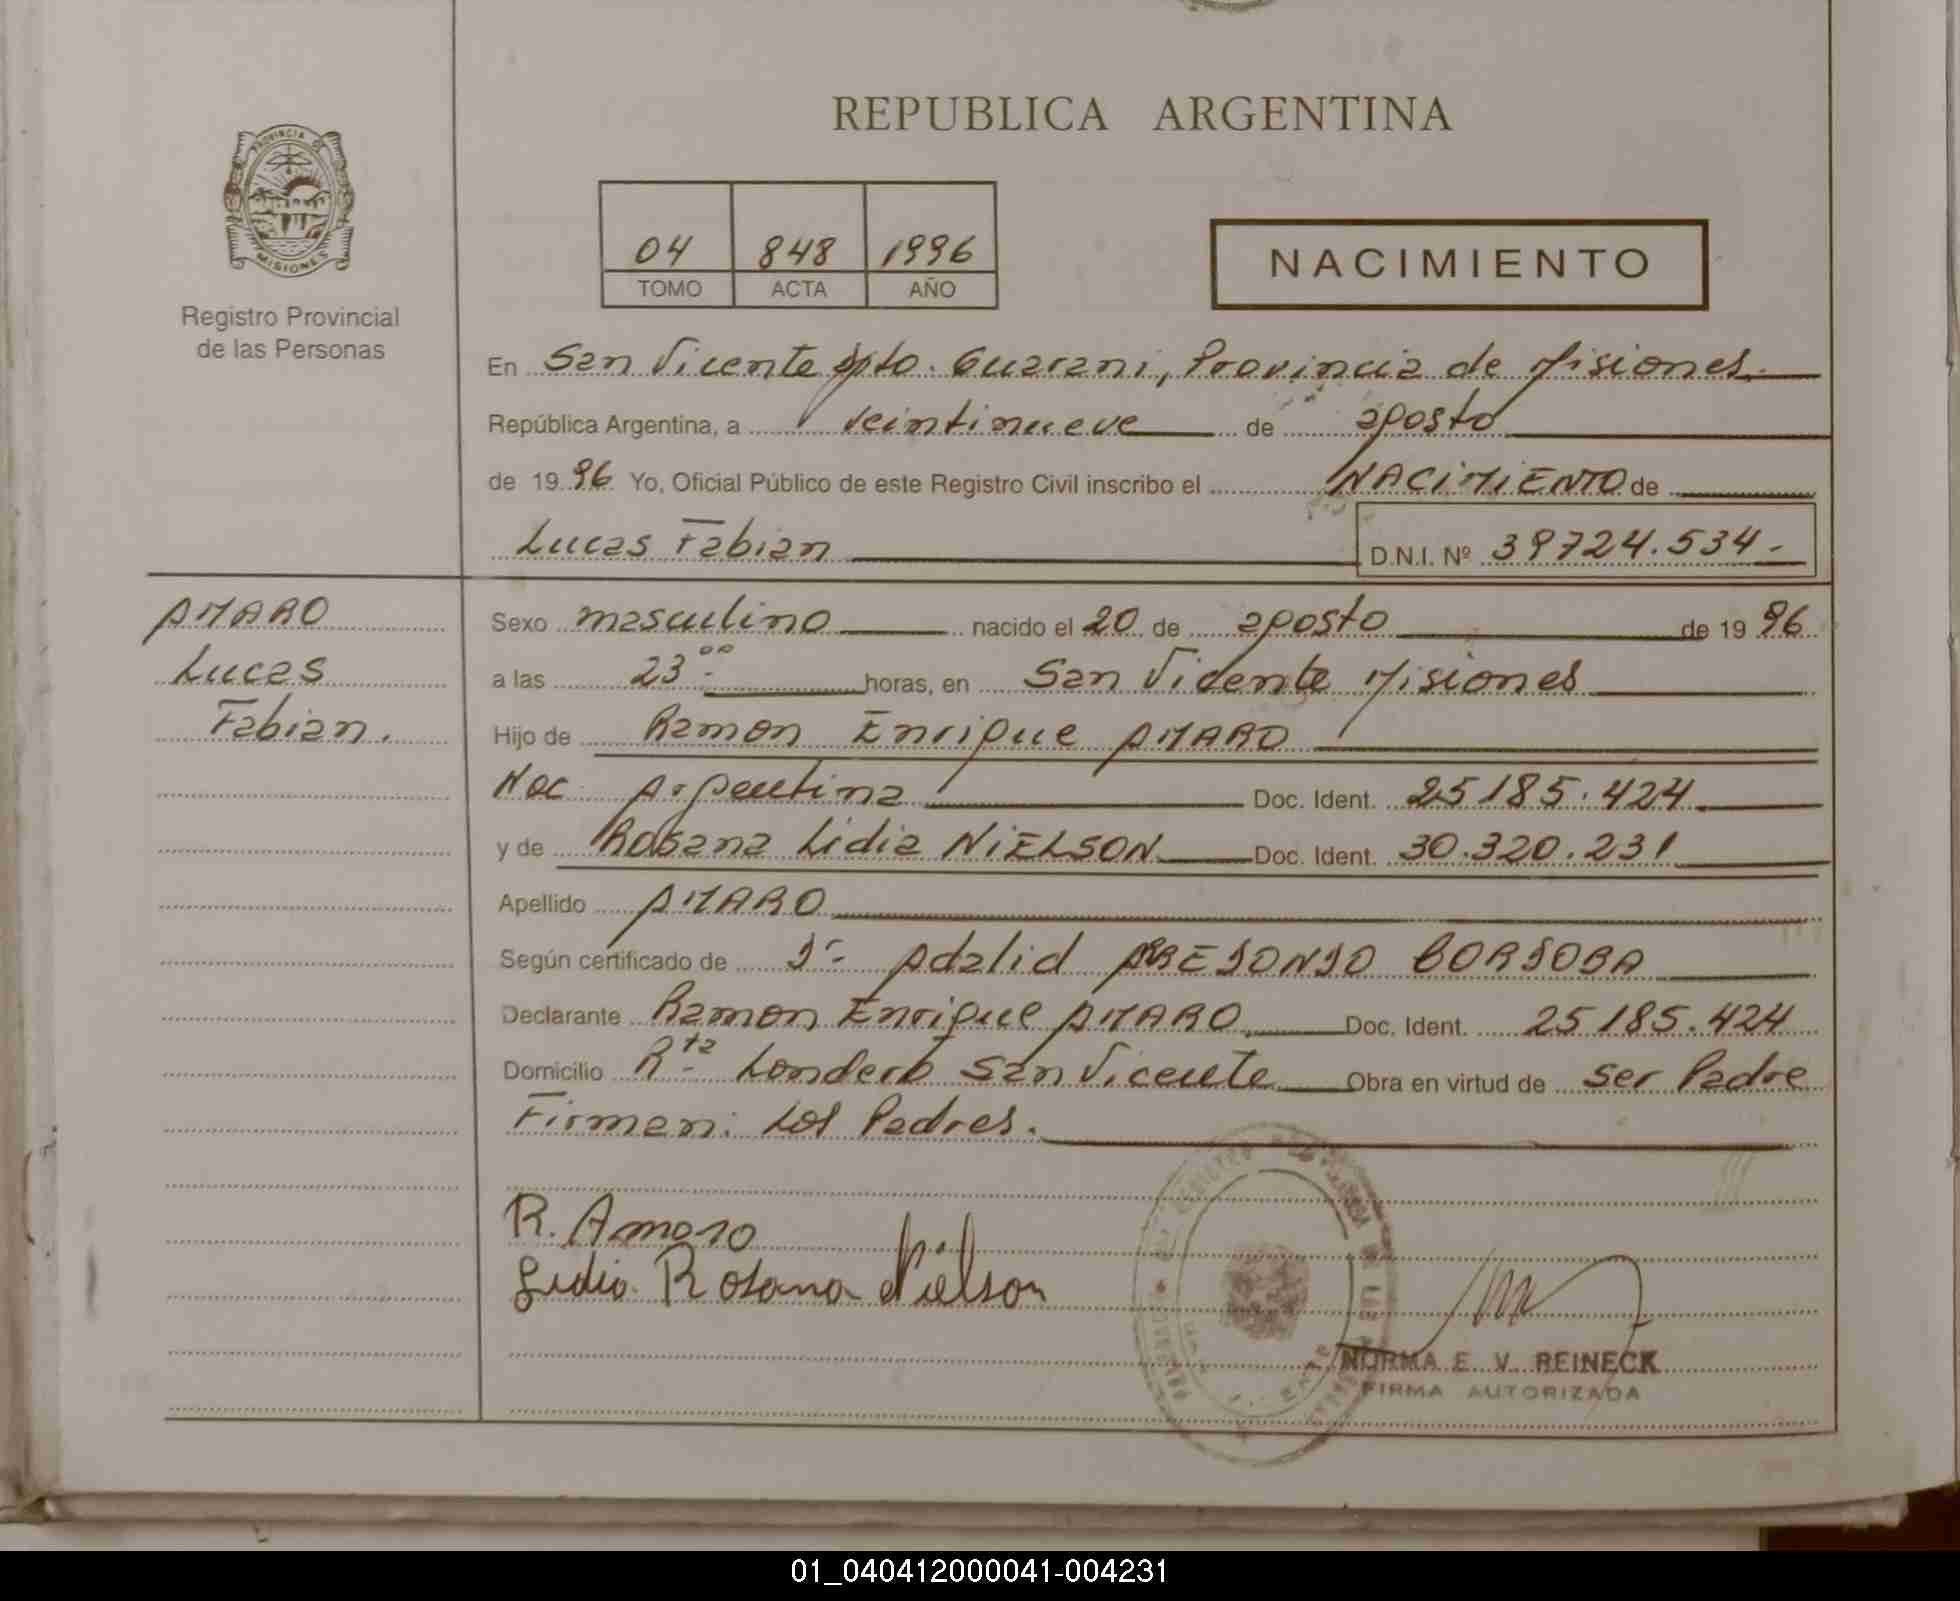 REPUBLICA ARGENTINA
PROVINCIA DE
MISIONES
Registro Provincial
de las Personas
04 848 1996
TOMO ACTA AÑO
NACIMIENTO
En San Vicente Dpto. Guarani, Provincia de Misiones.
República Argentina, a veintinueve de agosto
de 1996 Yo, Oficial Público de este Registro Civil inscribo el NACIMIENTO de
Lucas Fabian D.N.I. Nº 39724.534-
AMARO
Lucas
Fabian.
Sexo masculino nacido el 20 de agosto de 1996
a las 23 00 horas, en San Vicente Misiones
Hijo de Ramon Enrique AMARO
Nac. Argentina Doc. Ident. 25185.424
y de Rosana Lidia NIELSON Doc. Ident. 30.320.231
Apellido AMARO
Según certificado de Dr. Adalid BORJOBA
Declarante Ramon Enrique AMARO Doc. Ident. 25185.424
Domicilio Rta Londero San Vicente Obra en virtud de ser Padre
Firman: Los Padres.
R. Amaro
Lidia Rosana Nielson
NORMA E. V. REINECK
FIRMA AUTORIZADA
01_040412000041-004231